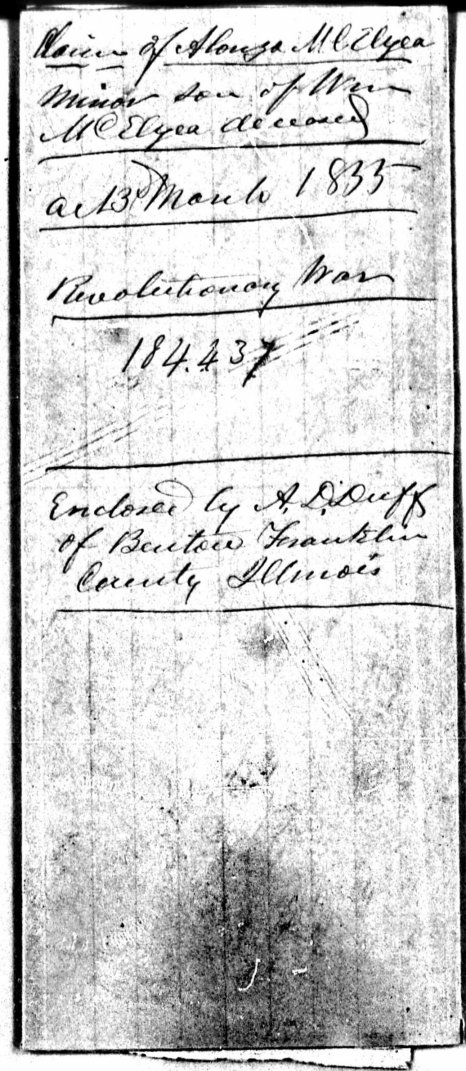 Claim of Alonzo McElyea
Minor son of Wm
McElyea deceased
act 3d March 1855
Revolutionary War
184.437
Enclosed by A. D. Duff
of Benton Franklin
County Illinois